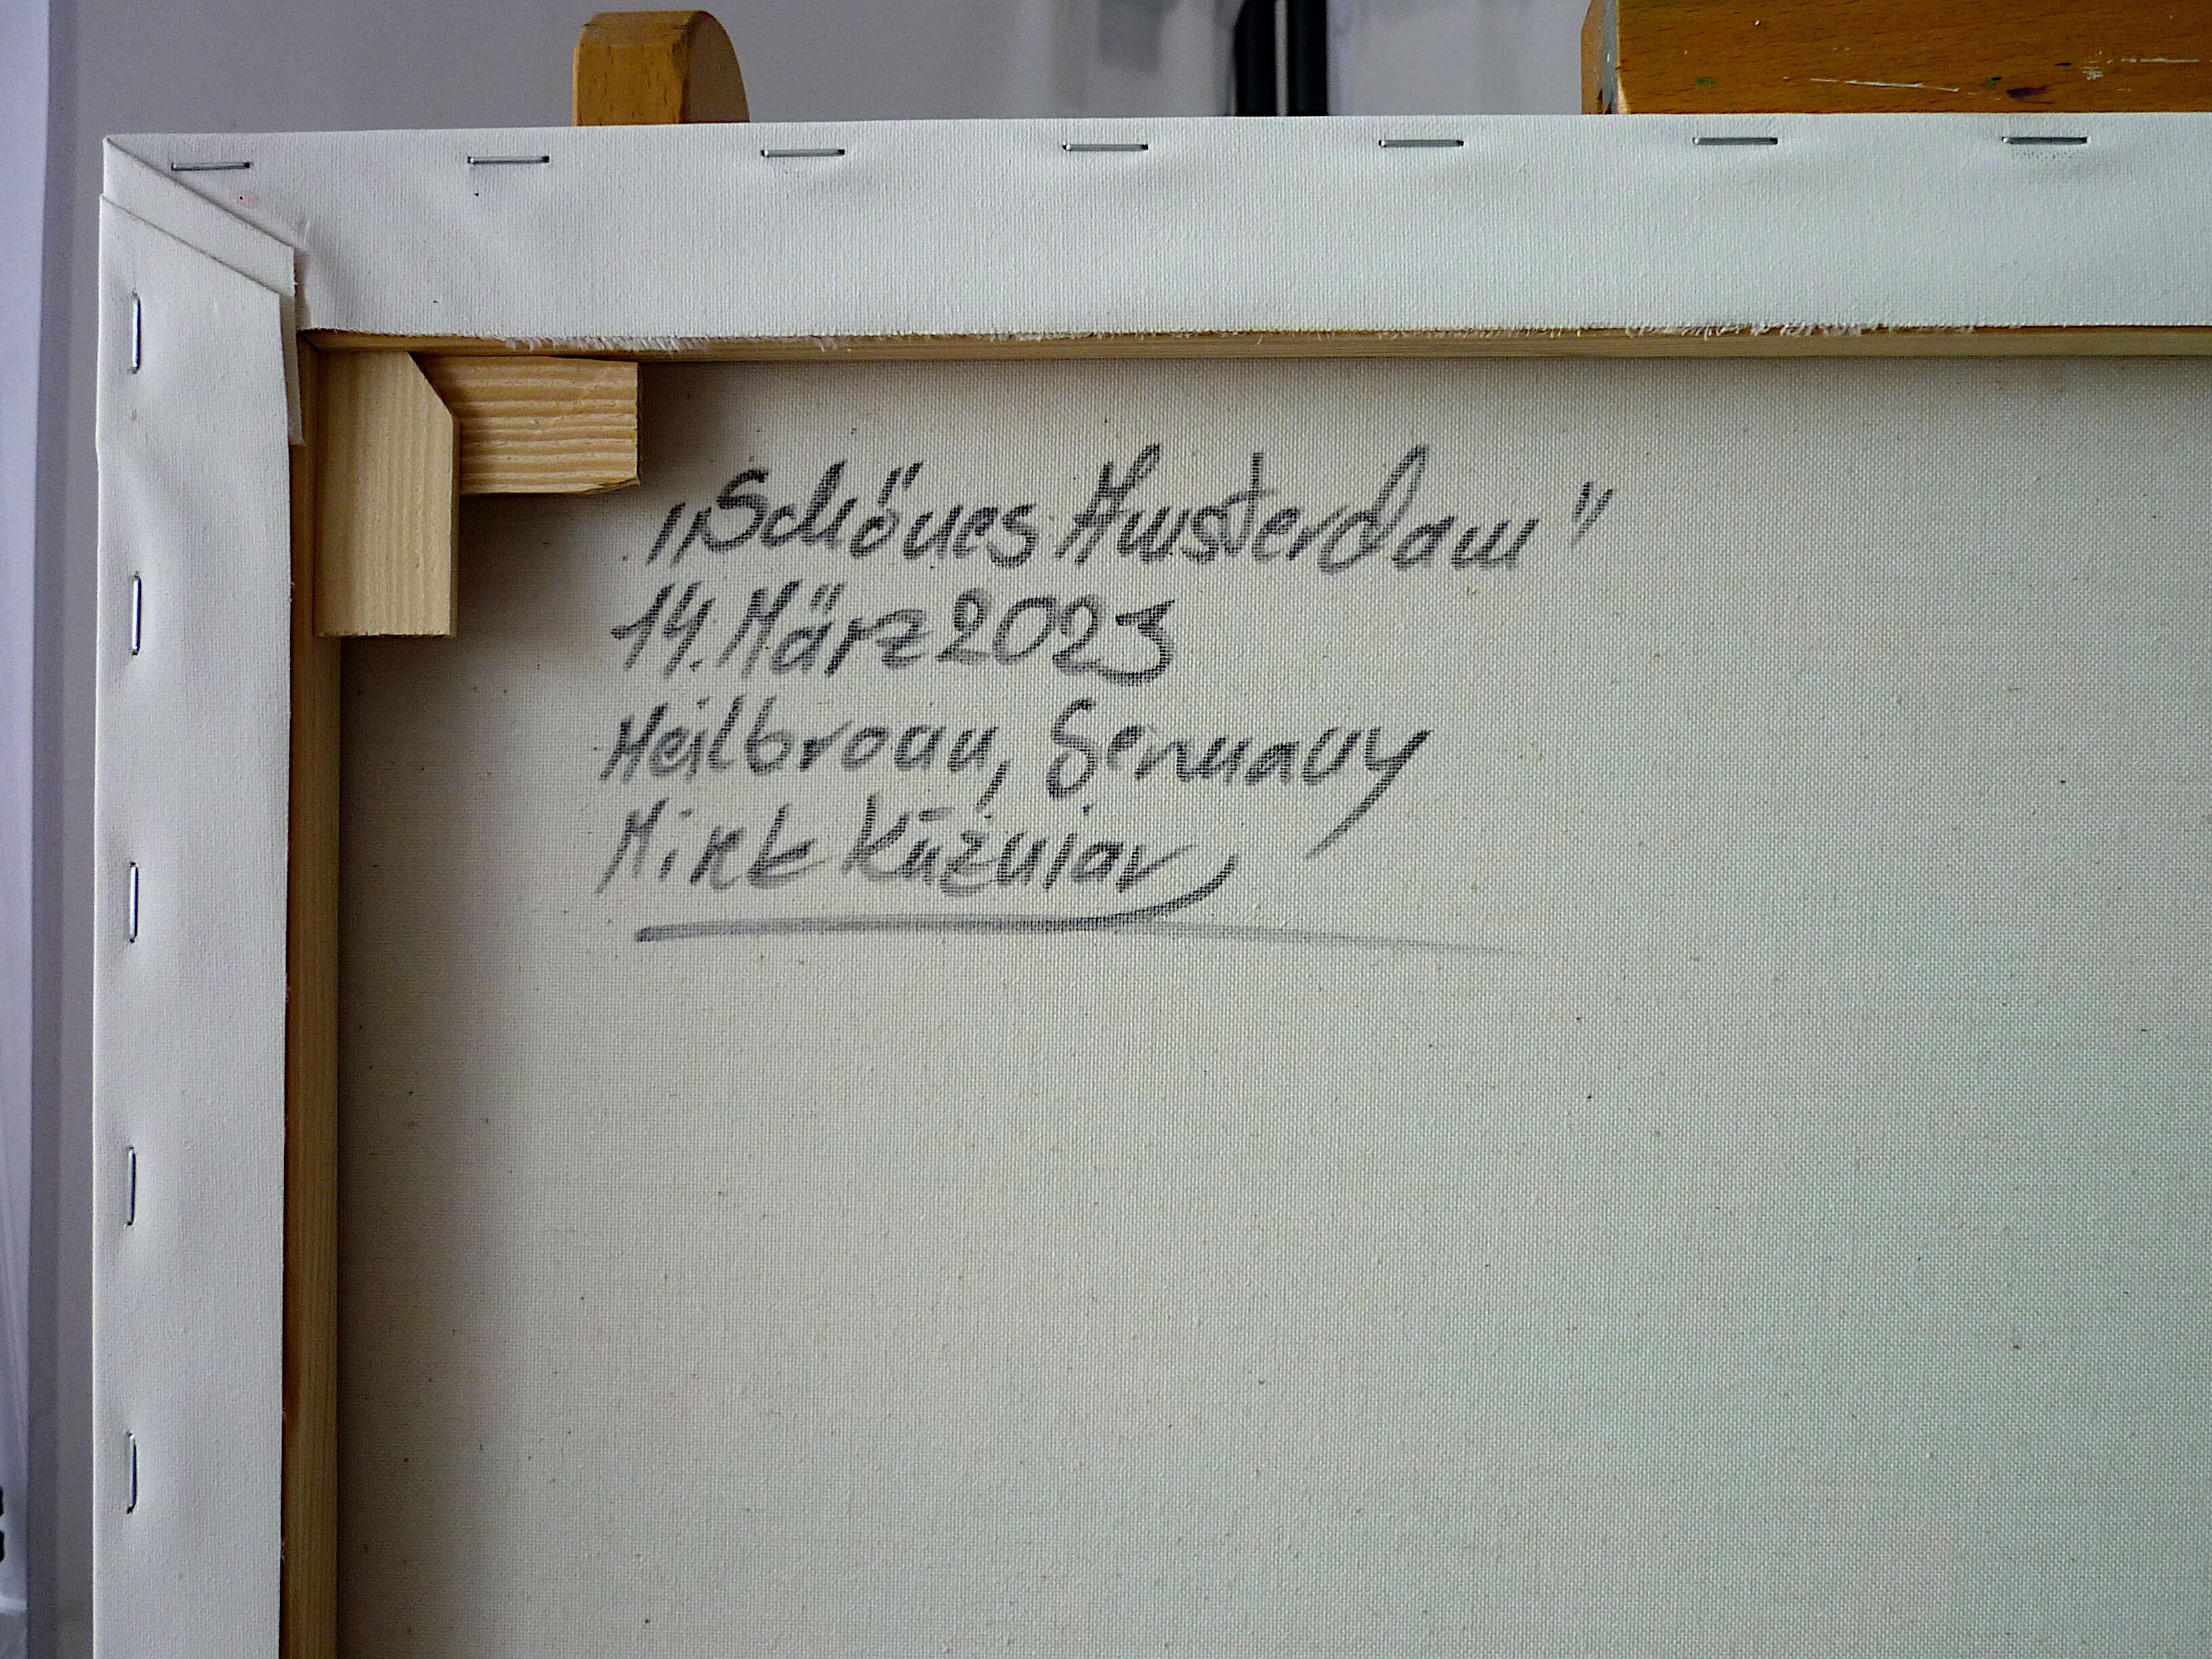 „Schönes Amsterdam"
14. März 2023
Heilbronn, Germany
Mirek Kuzniar